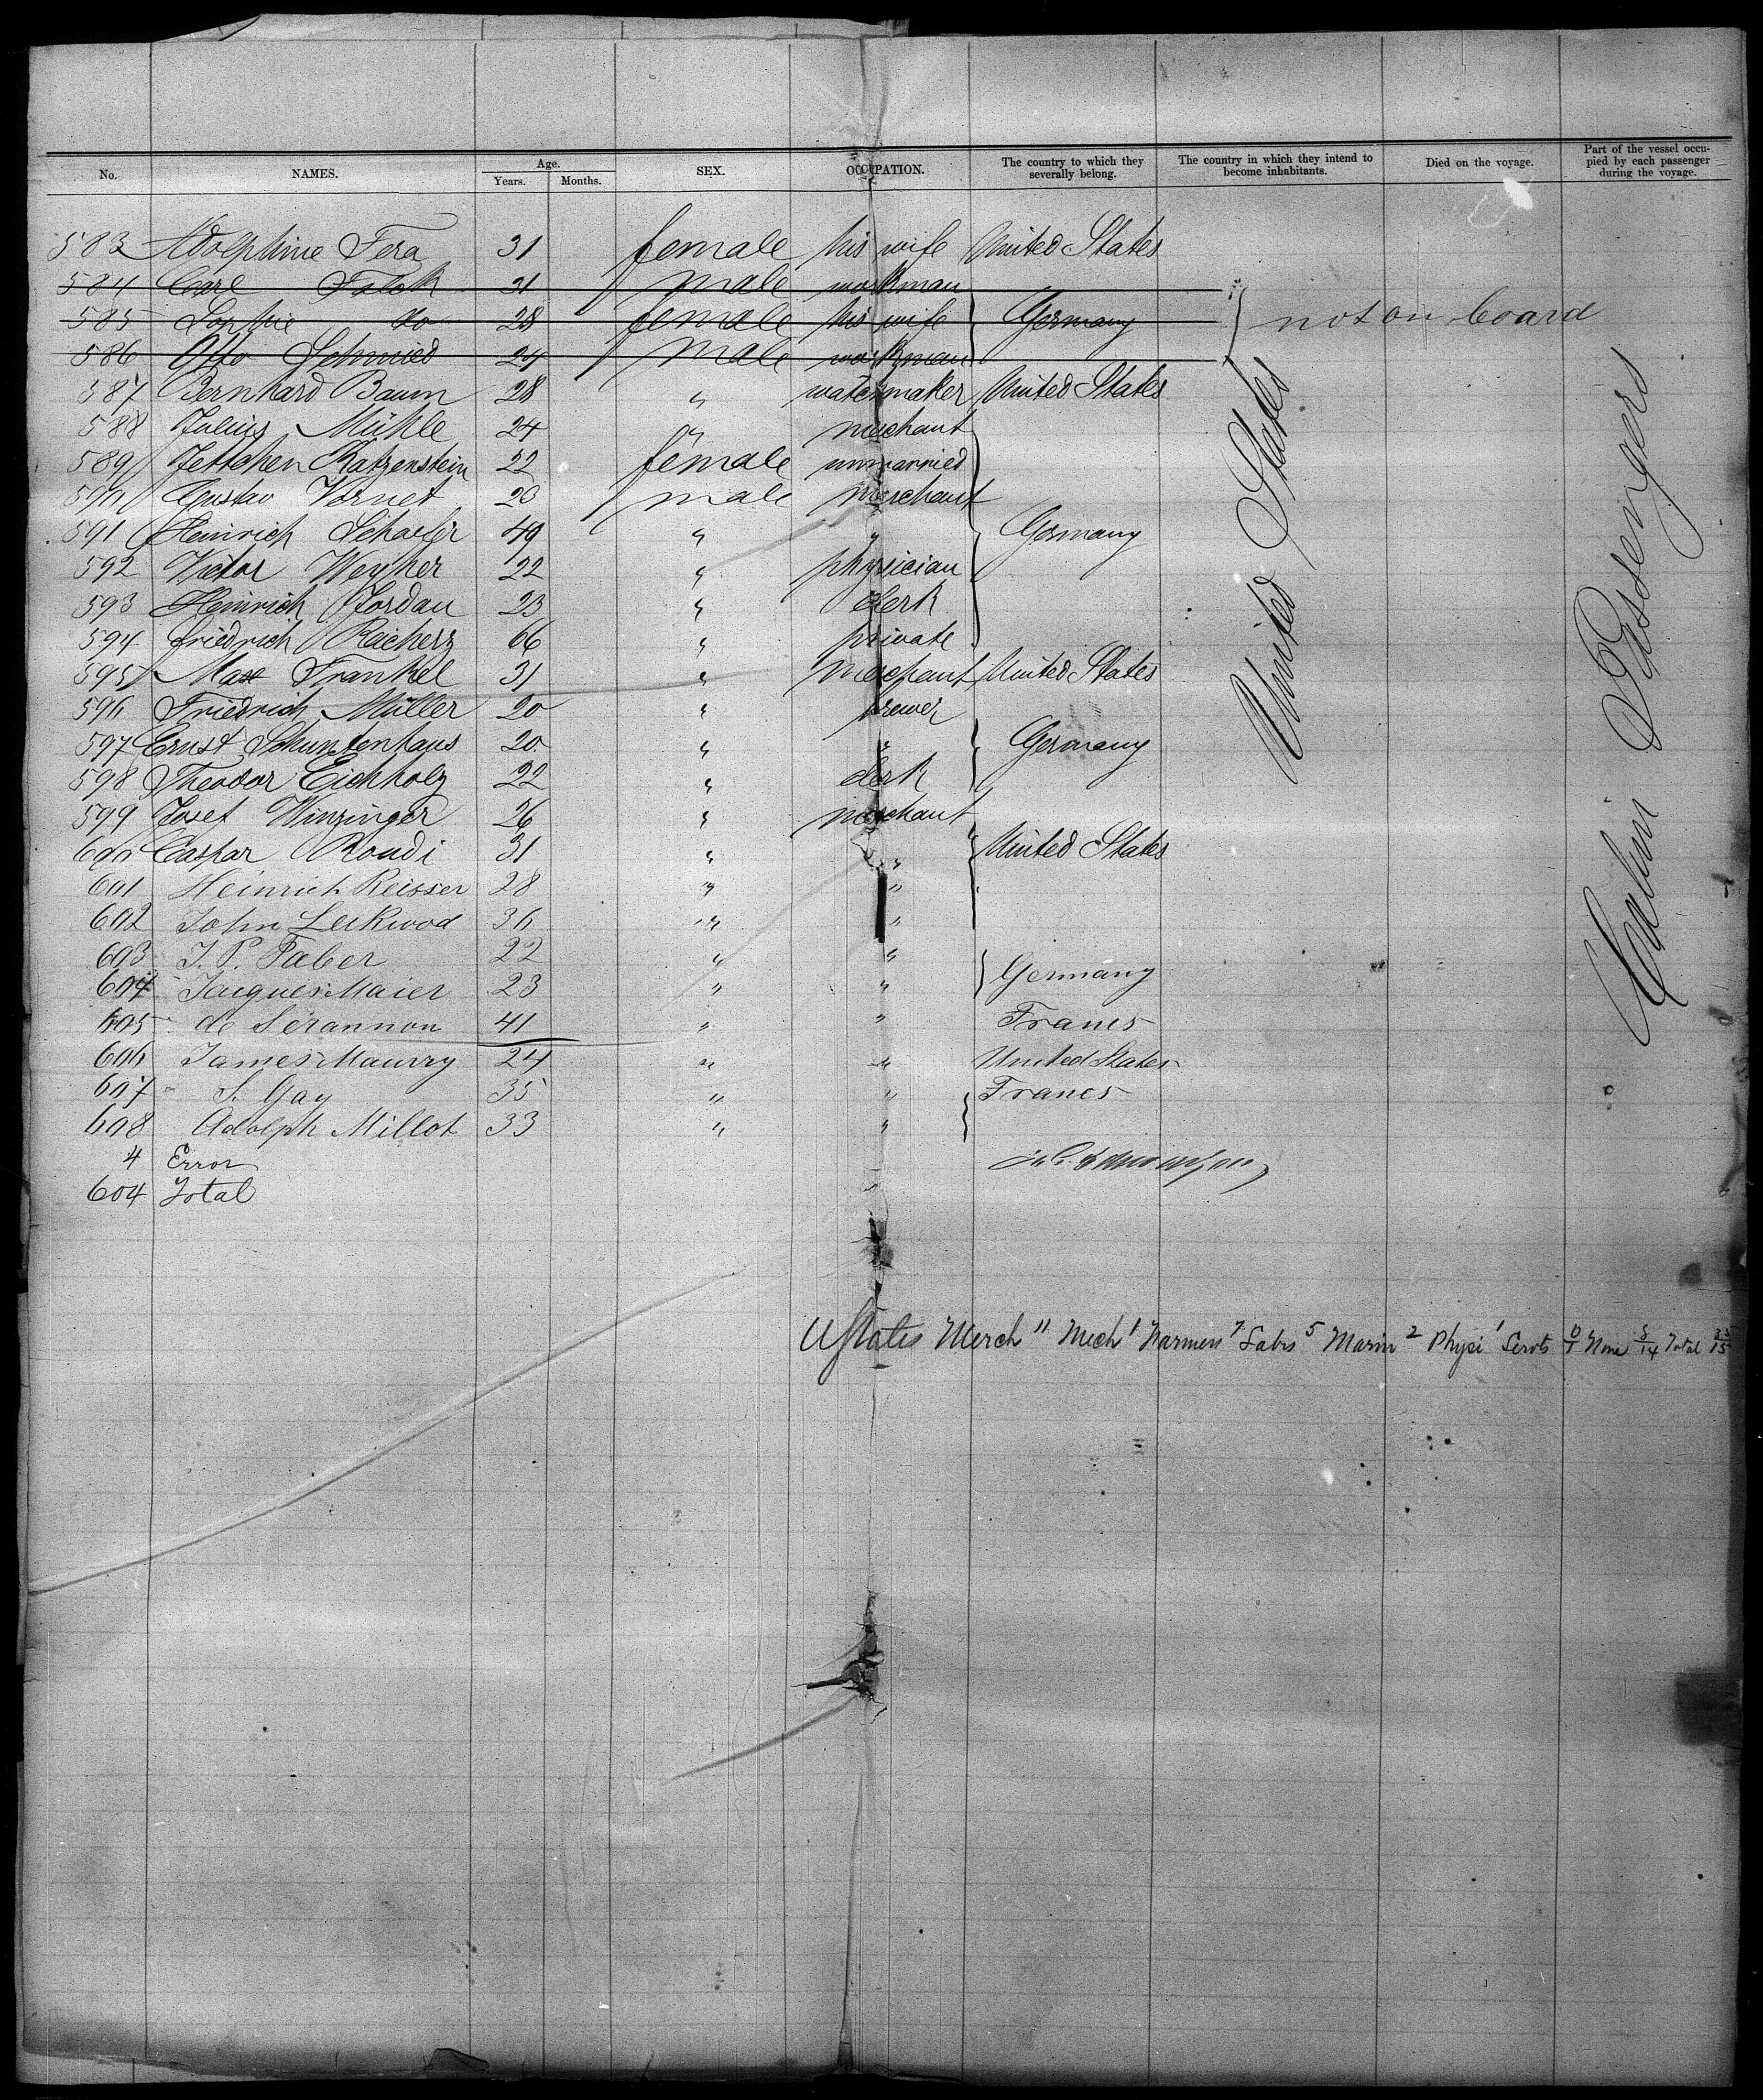 No. NAMES. Age. Years. Months. SEX. OCCUPATION. The country to which they severally belong. The country in which they intend to become inhabitants. Died on the voyage. Part of the vessel occupied by each passenger during the voyage.
583 Adolphine Fera 31 female his wife United States
584 Carl Falck 31 male workman
585 Sophie do 28 female his wife Germany not on board
586 Otto Schmied 24 male workman
587 Bernhard Baum 28 " watchmaker United States
588 Julius Mühle 24 " merchant
589 Jettchen Katzenstein 22 female unmarried
590 Gustav Vornet 20 male merchant
591 Heinrich Schaefer 49 " " Germany
592 Victor Weyher 22 " physician
593 Heinrich Jordan 23 " clerk
594 Friedrich Reicherz 66 " private
595 Max Frankel 31 " merchant United States
596 Friedrich Müller 20 " brewer
597 Ernst Schuntenhaus 20 " " Germany
598 Theodor Eichholz 22 " clerk
599 Josef Winzinger 26 " merchant
600 Caspar Roudi 31 " " United States
601 Heinrich Reisser 28 " "
602 John Leckwod 36 " "
603 J. P. Faber 22 " "
604 Jacques Maier 23 " " Germany
605 de Serannon 41 " " France
606 James Maurry 24 " " United States
607 S. Gay 35 " " France
608 Adolph Millot 33 " "
4 Error
604 Total
United States
Cabin Passengers
UStates Merch 11 Mech 1 Farmers 7 Labs 5 Marin 2 Physi 1 Servts 0/1 None 8/14 Total 35/15